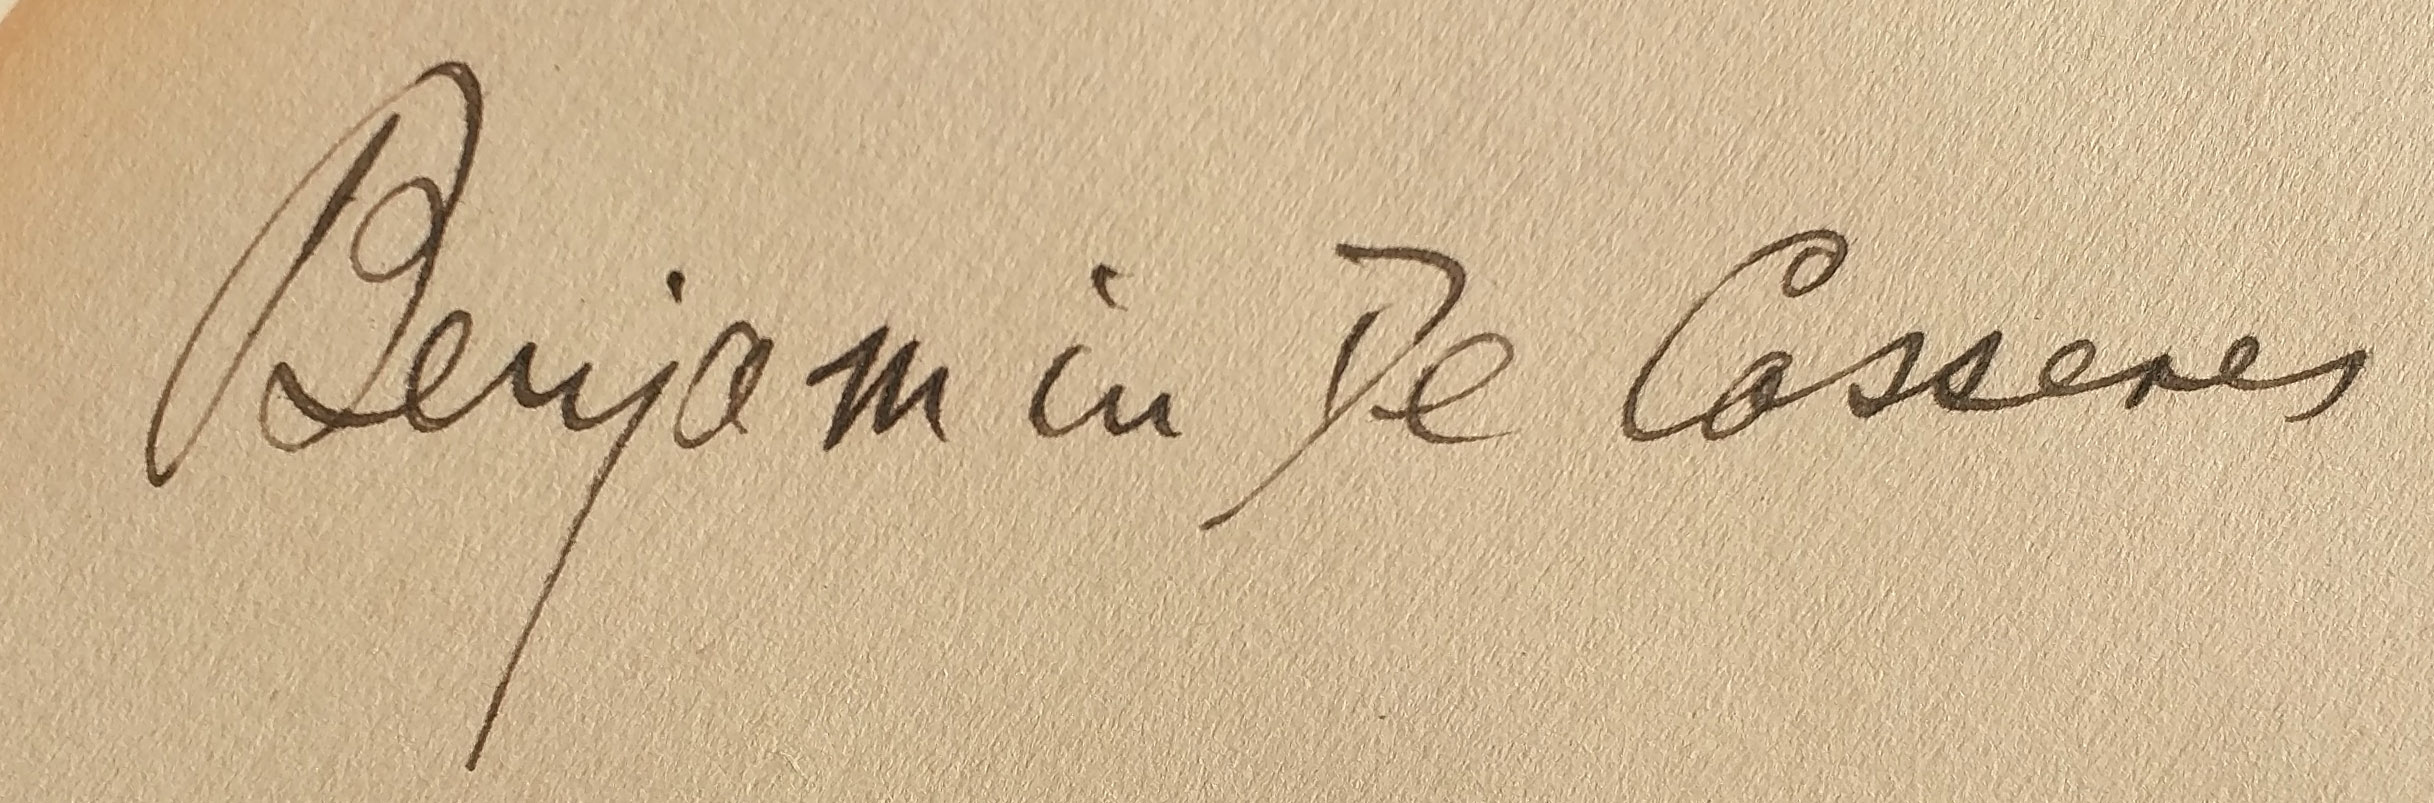 Benjamin De Casseres